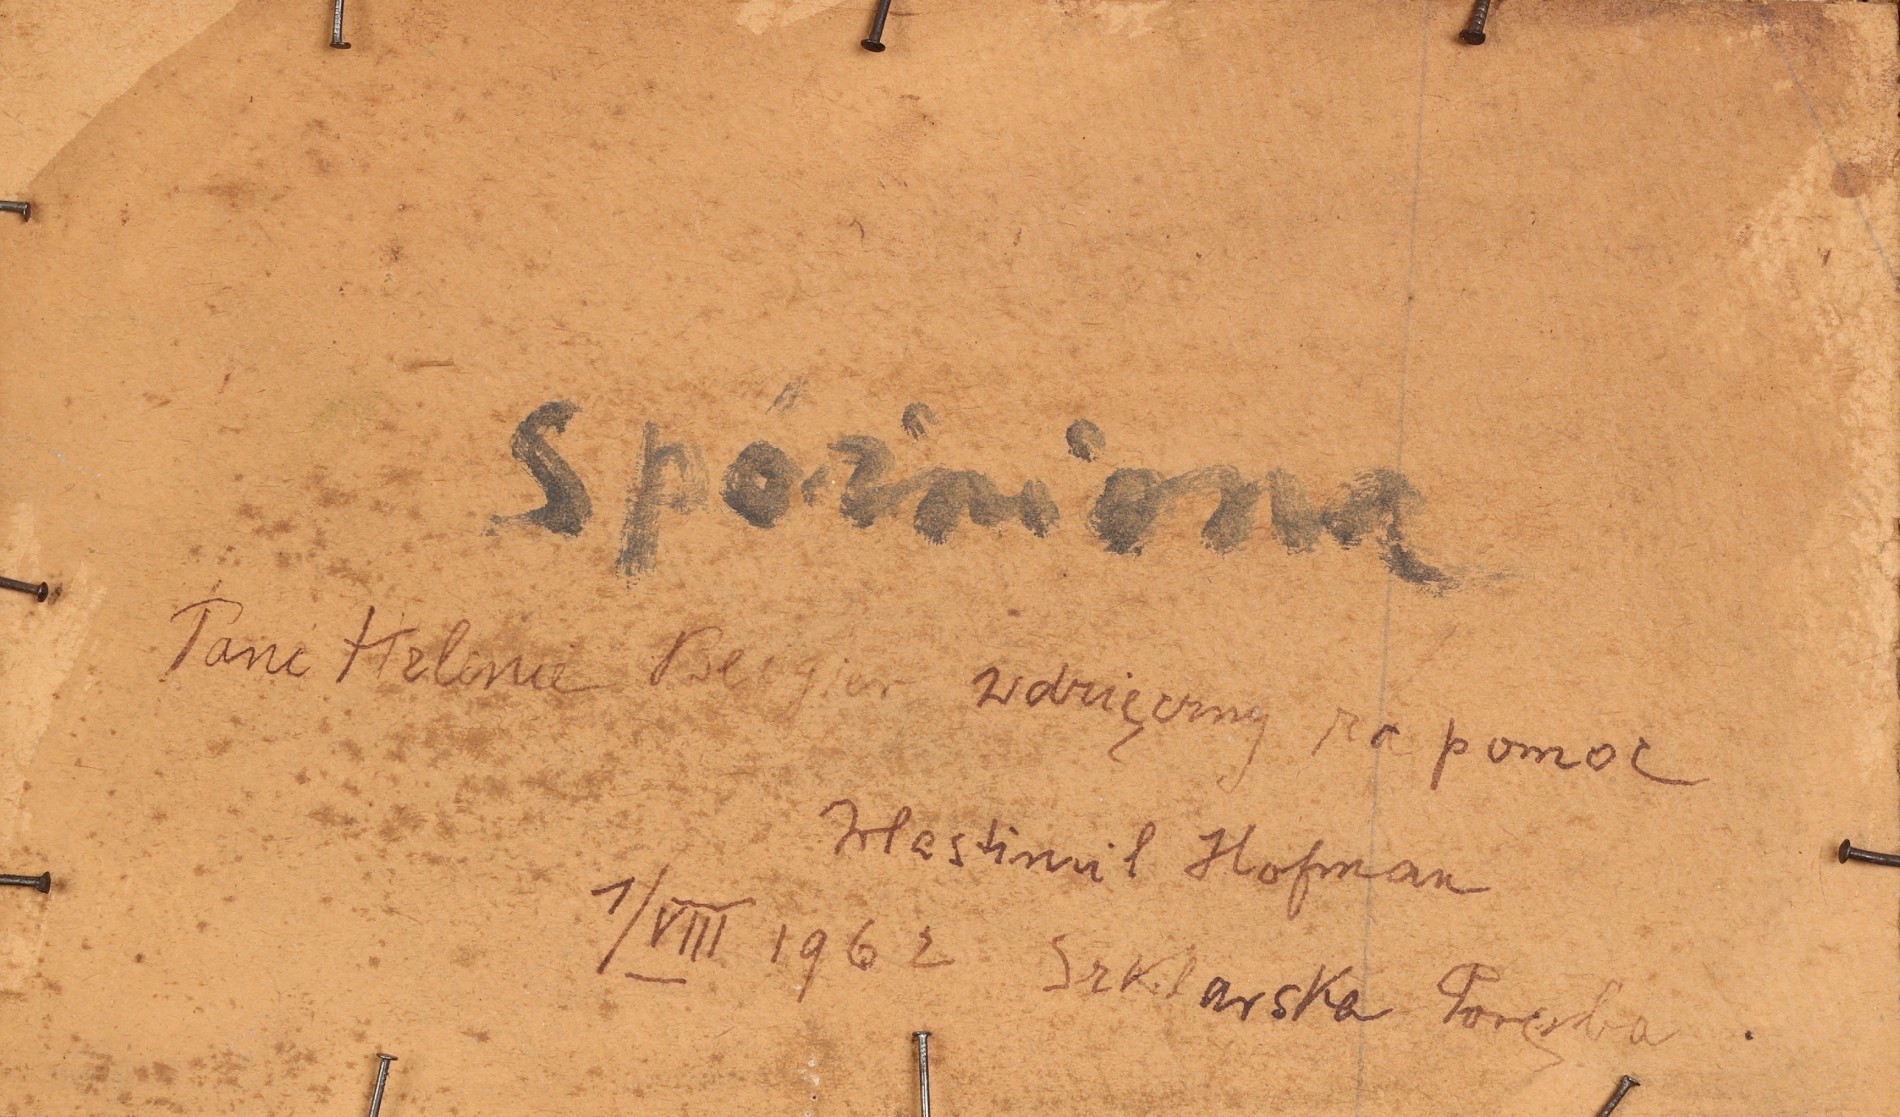 Spóźniona
Pani Helenie Beigier wdzięczny za pomoc
Wlastimil Hofman
1/VIII 1962 Szklarska Poręba.